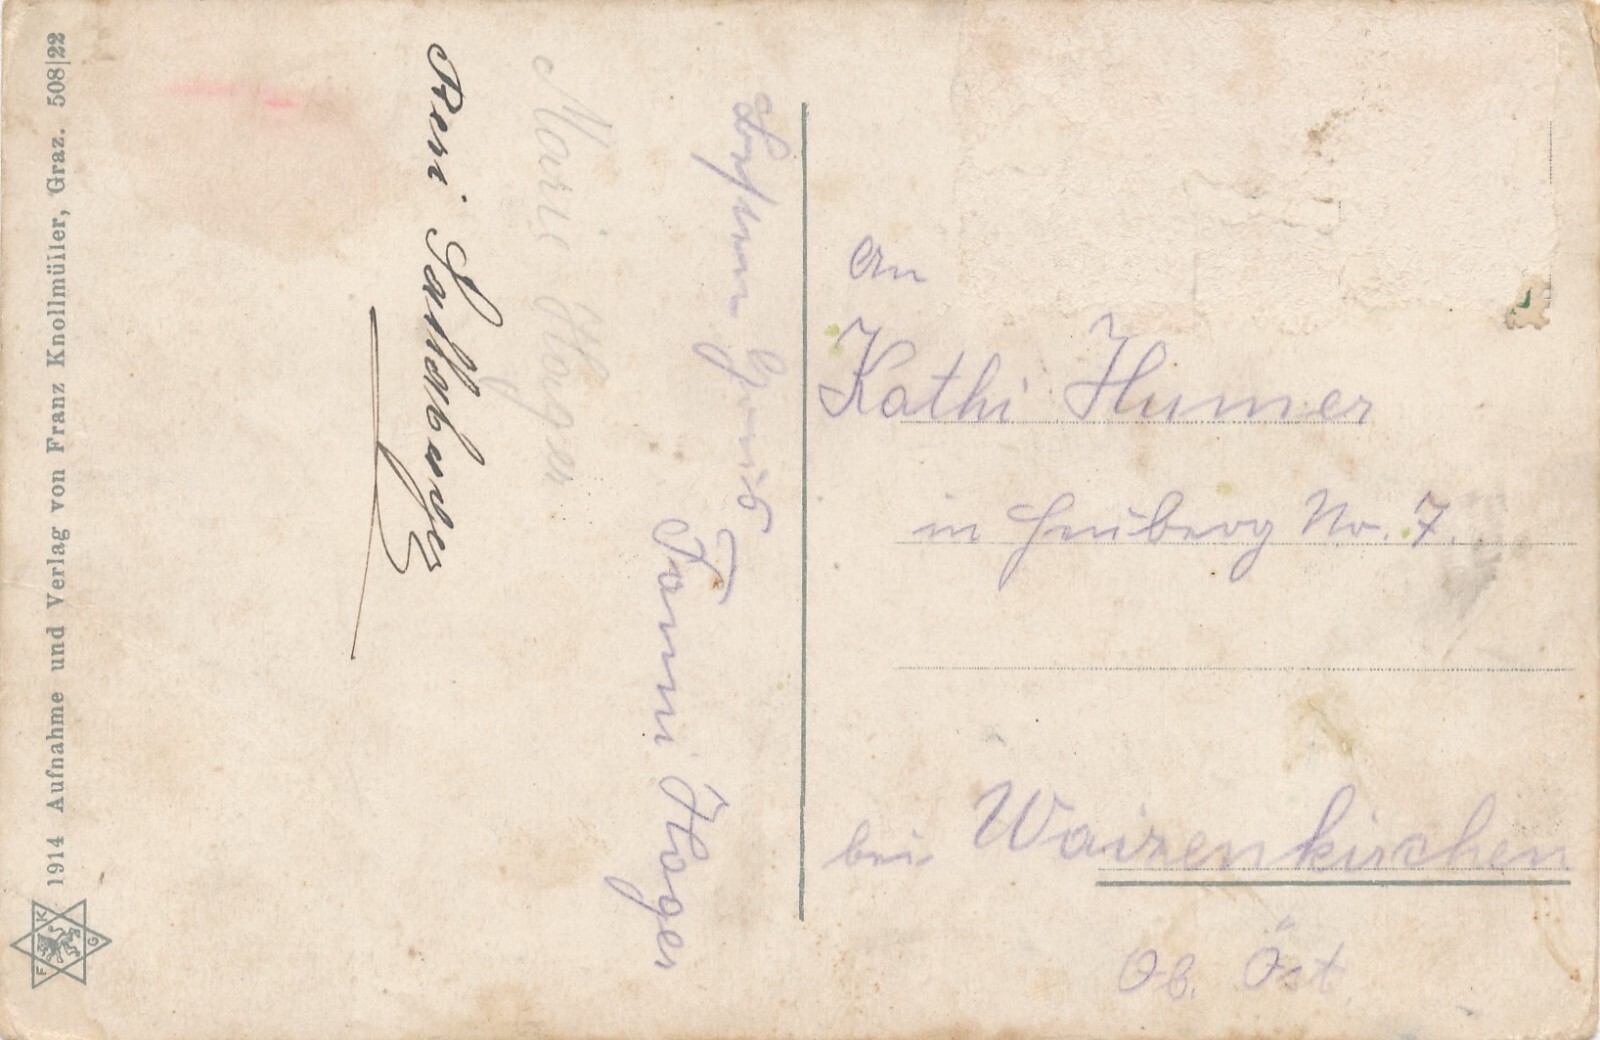 1914 Aufnahme und Verlag von Franz Knollmüller, Graz. 508|22
F K G
Resi
Marie Hager
Gruß
Fanni Hager
An
Kathi Humer
in Heuberg No. 7.
bei Waizenkirchen
Ob. Öst